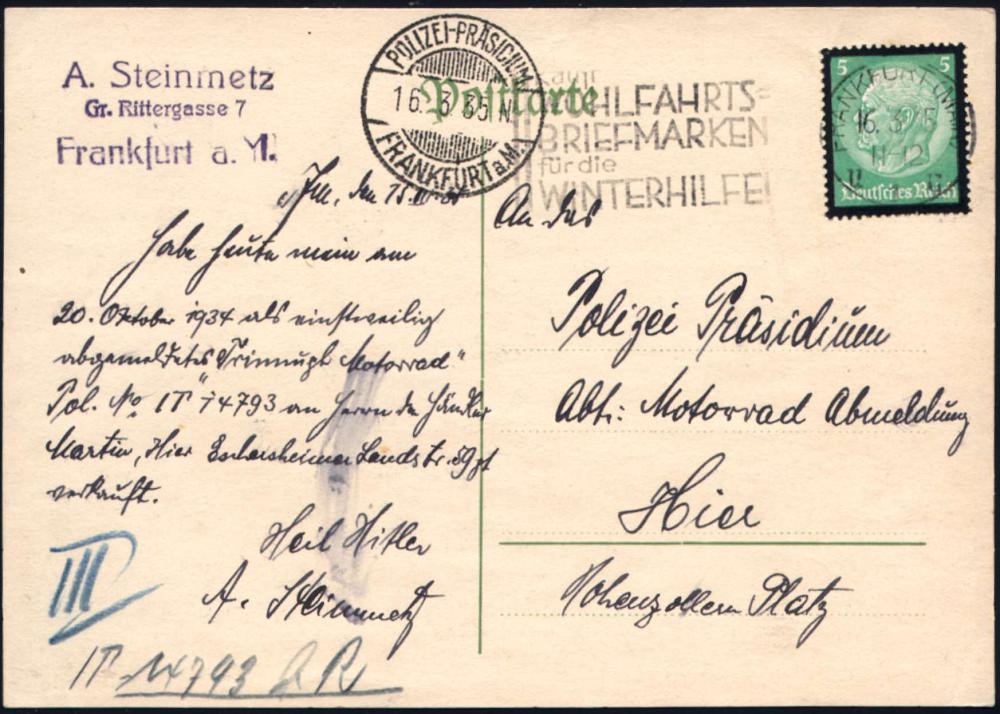 A. Steinmetz
Gr. Rittergasse 7
Frankfurt a. M.
POLIZEI-PRÄSIDIUM
16. 3. 35 N.
FRANKFURT a.M.
Postkarte
Kauft
WOHLFAHRTS-
BRIEFMARKEN
für die
WINTERHILFE!
5 5
FRANKFURT (MAIN)
16. 3. 35
11-12
Deutsches Reich
Ffm, den 15.
Habe heute mein am
20. Oktober 1934 als einstweilig
abgemeldetes "Triumph Motorrad"
Pol. No IT 74793 an Herrn den Händler
Martin, Hier Eschersheimer Landstr. 59
verkauft.
Heil Hitler
A. Steinmetz
III
IT 74793
An das
Polizei Präsidium
Abt: Motorrad Abmeldung
Hier
Hohenzollern Platz